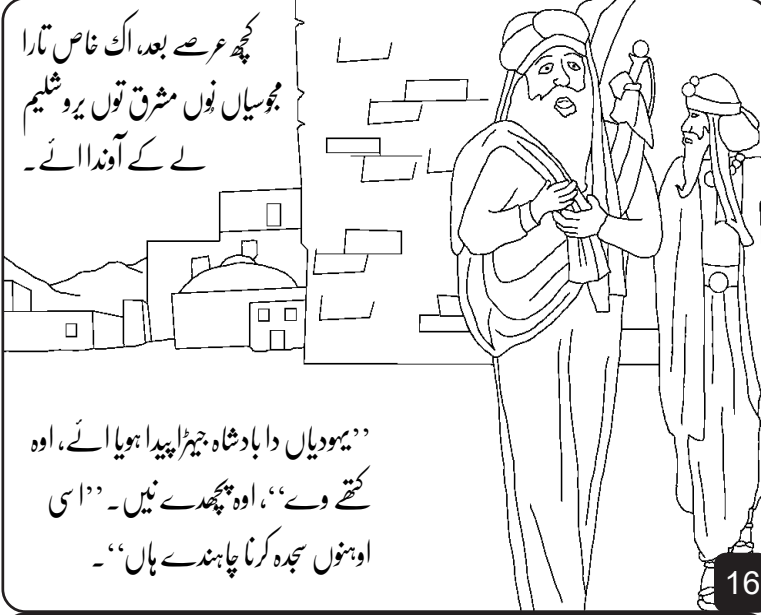 کچھ عرصے بعد، اک خاص تارا
مجوسیاں نُوں مشرق توں یروشلیم
لے کے آوندا ائے۔
’’یہودیاں دا بادشاہ جیہڑا پیدا ہویا ائے، اوہ
کتھے وے‘‘، اوہ پچھدے نیں۔ ’’اسی
اوہنوں سجدہ کرنا چاہندے ہاں‘‘۔
16